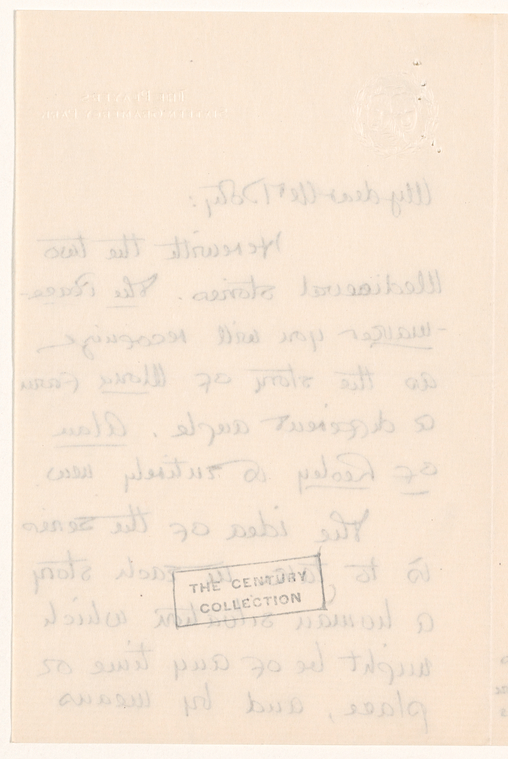 THE PLAYERS
My dear Mr Doty:
Herewith the two
Mediaeval stories. The Peace-
-maker you will recognize
as the story of Mary from
a different angle. Alan
of Lesley is entirely new.
The idea of the series
is to take in each story
a human situation which
might be of any time or
place, and by means
THE CENTURY
COLLECTION